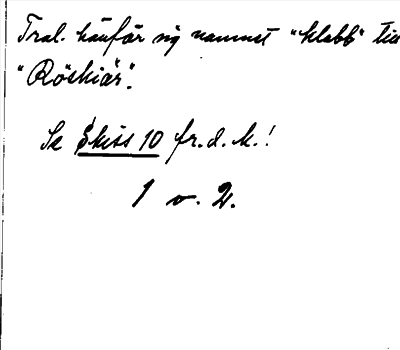 Tral. hänför sig namnet "klabb" till
"Röskär".
Se Skiss 10 fr. d. k.!
1 v. 2.